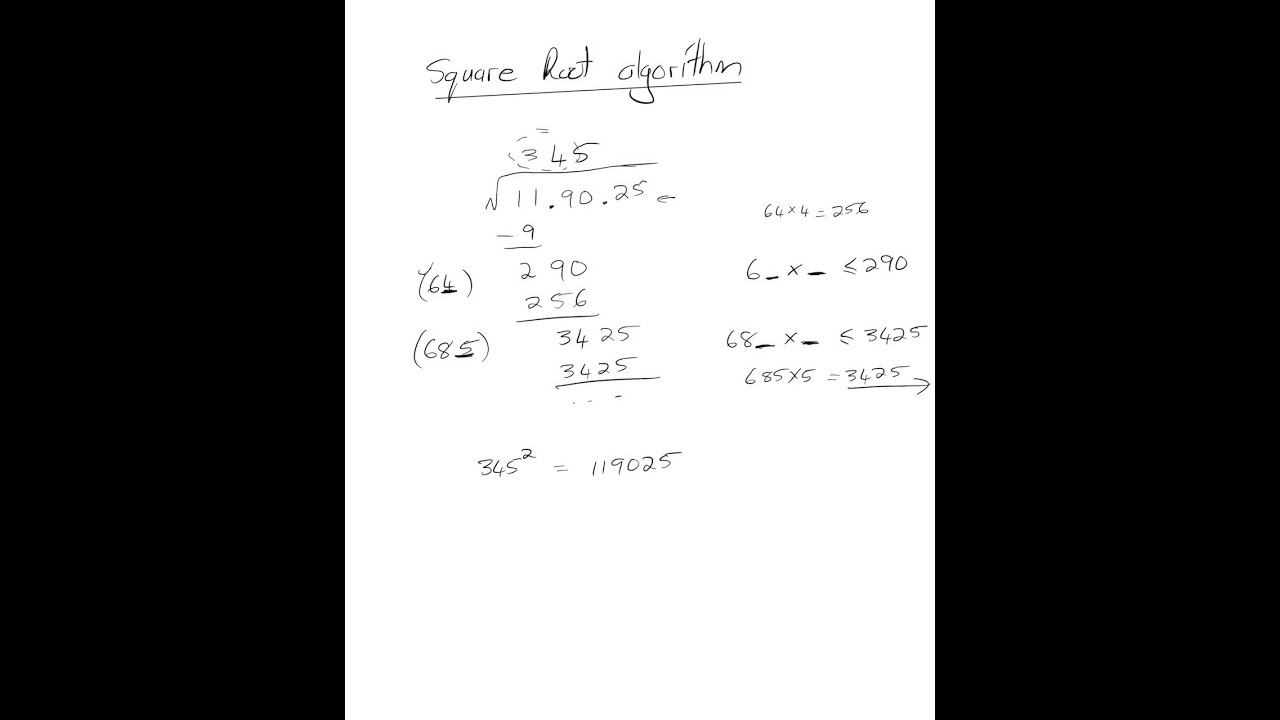 Square Root algorithm
345
√11.90.25 ←
64×4=256
-9
(64) 290
6_ × _ ≤290
256
(685) 3425
68_ × _ ≤ 3425
3425
685×5 =3425
345² = 119025